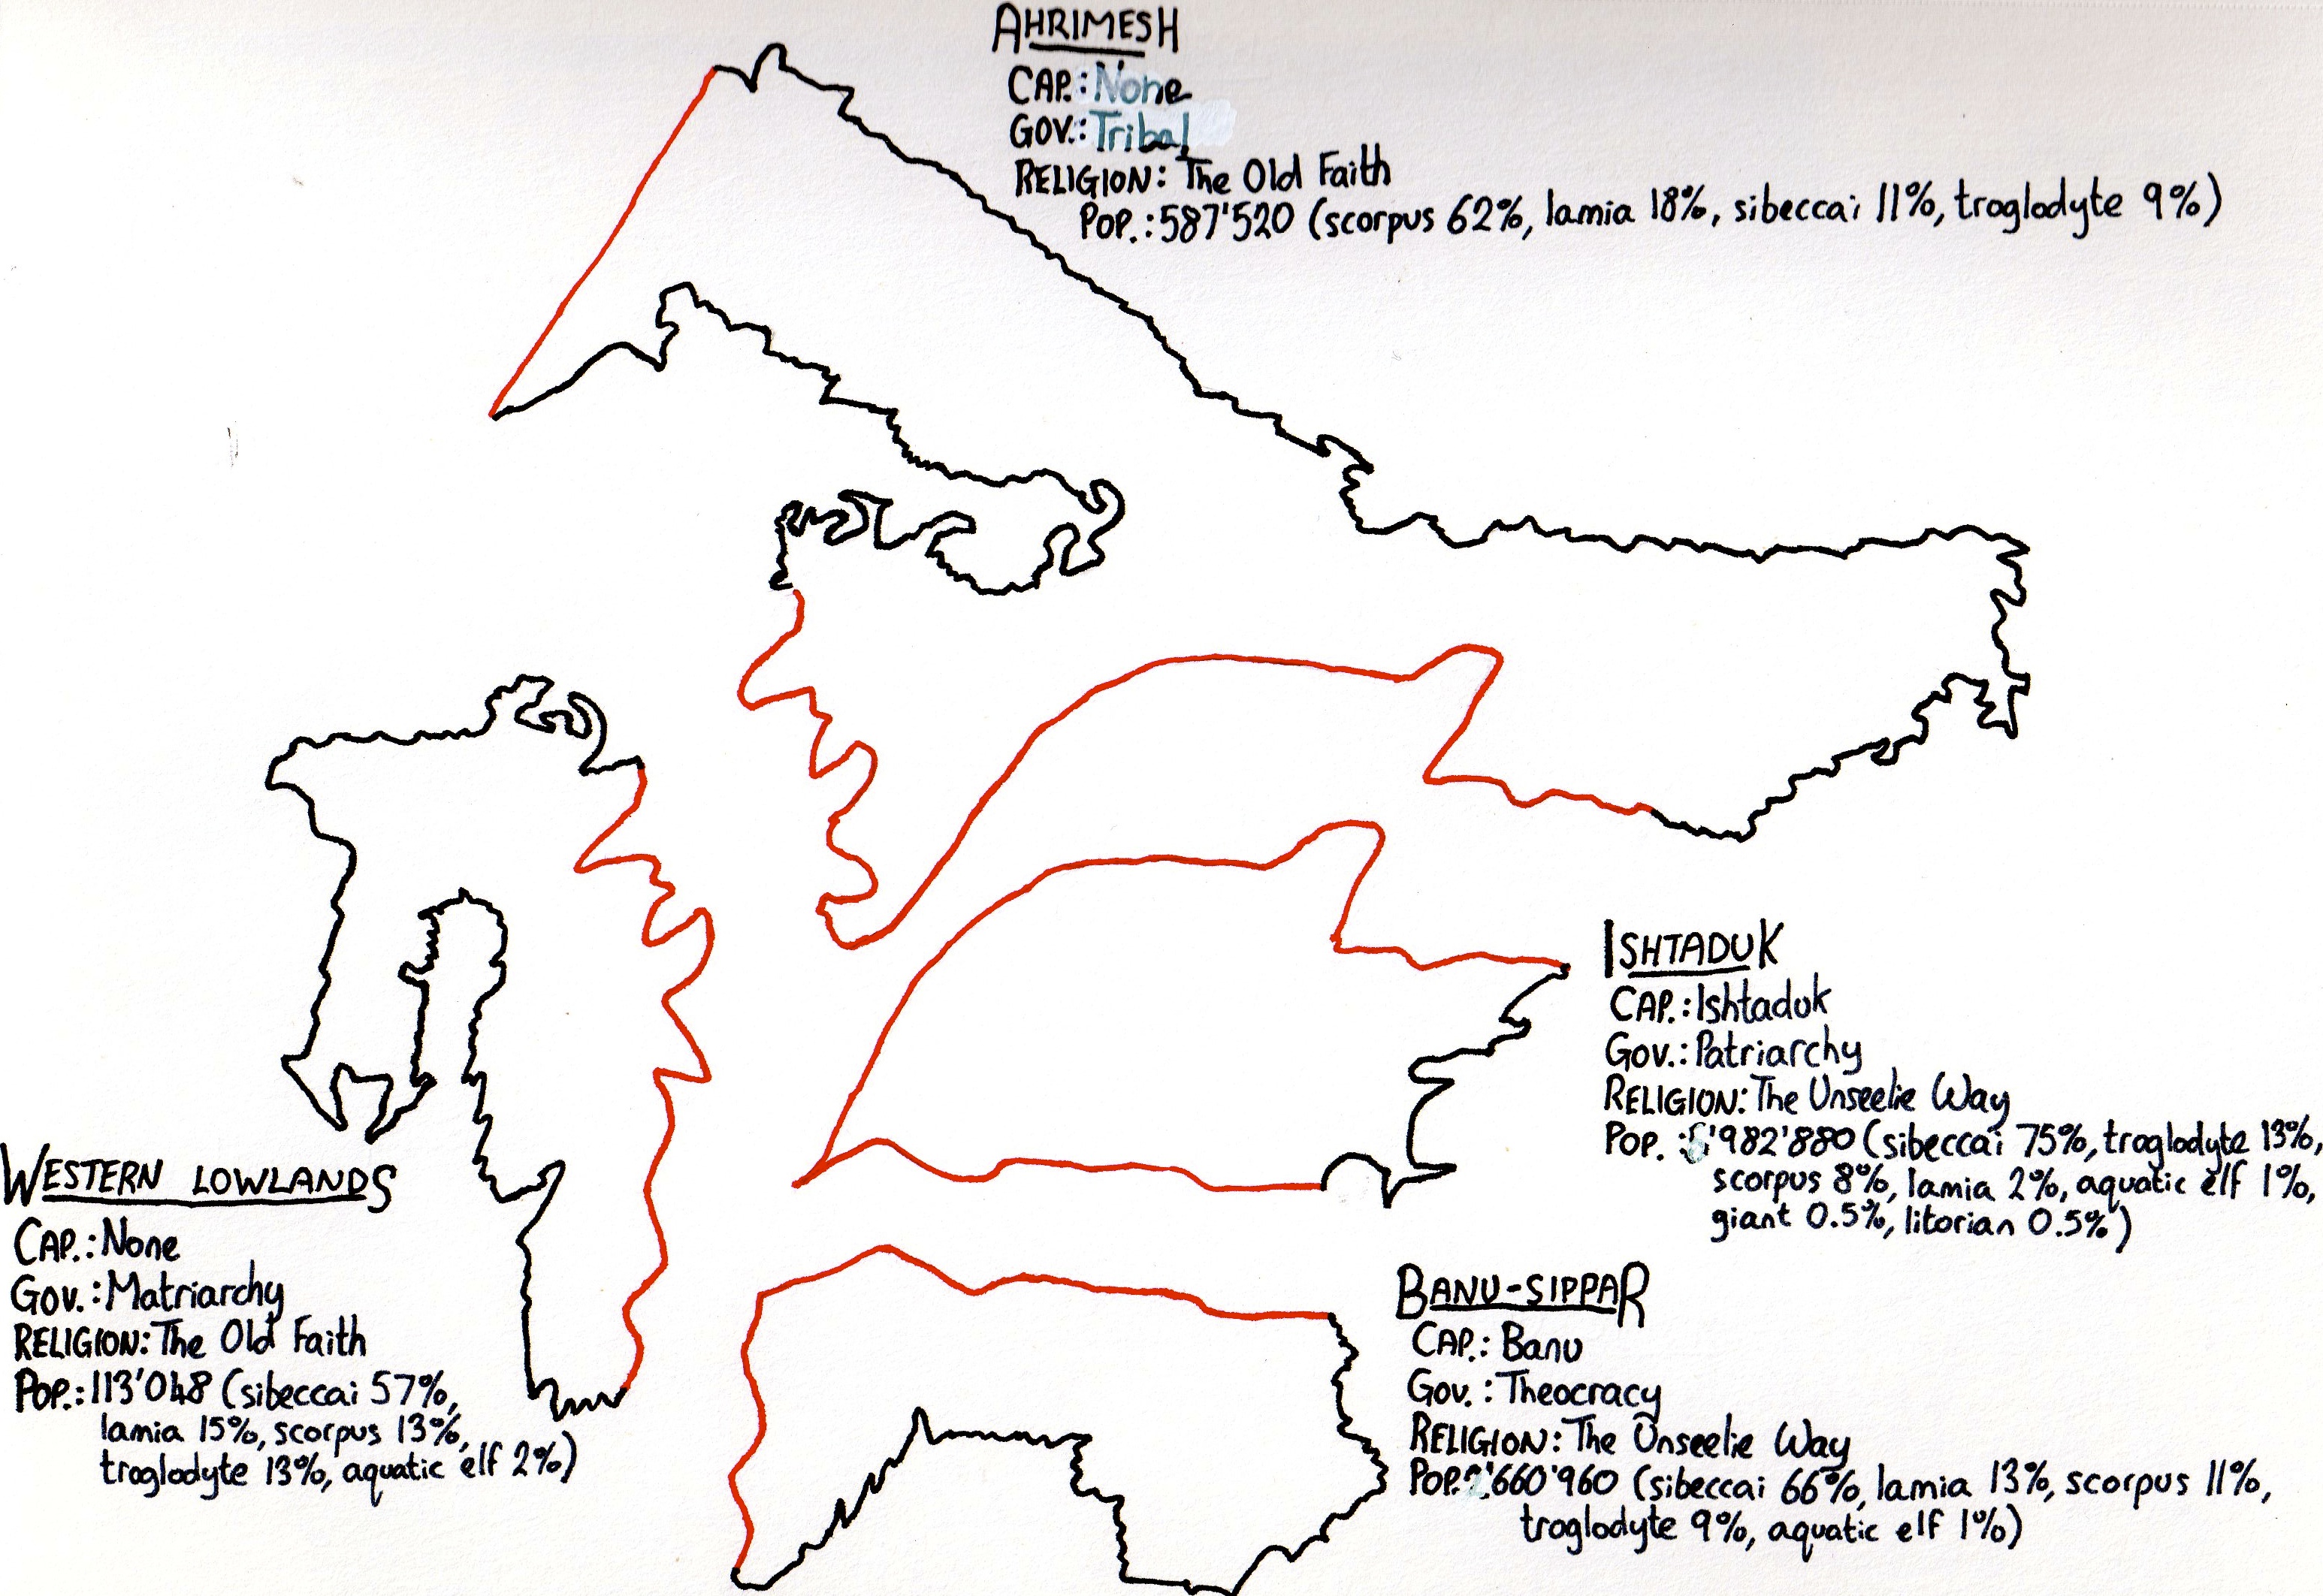 AHRIMESH
CAP.: None
GOV.: Tribal
RELIGION: The Old Faith
POP.: 587'520 (scorpus 62%, lamia 18%, sibeccai 11%, troglodyte 9%)
ISHTADUK
CAP.: Ishtaduk
GOV.: Patriarchy
RELIGION: The Unseelie Way
POP. : '982'880 (sibeccai 75%, troglodyte 13%,
scorpus 8%, lamia 2%, aquatic elf 1%,
giant 0.5%, litorian 0.5%)
WESTERN LOWLANDS
CAP.: None
GOV.: Matriarchy
RELIGION: The Old Faith
POP.: 113'048 (sibeccai 57%,
lamia 15%, scorpus 13%,
troglodyte 13%, aquatic elf 2%)
BANU-SIPPAR
CAP.: Banu
GOV.: Theocracy
RELIGION: The Unseelie Way
POP. 2'660'960 (sibeccai 66%, lamia 13%, scorpus 11%,
troglodyte 9%, aquatic elf 1%)